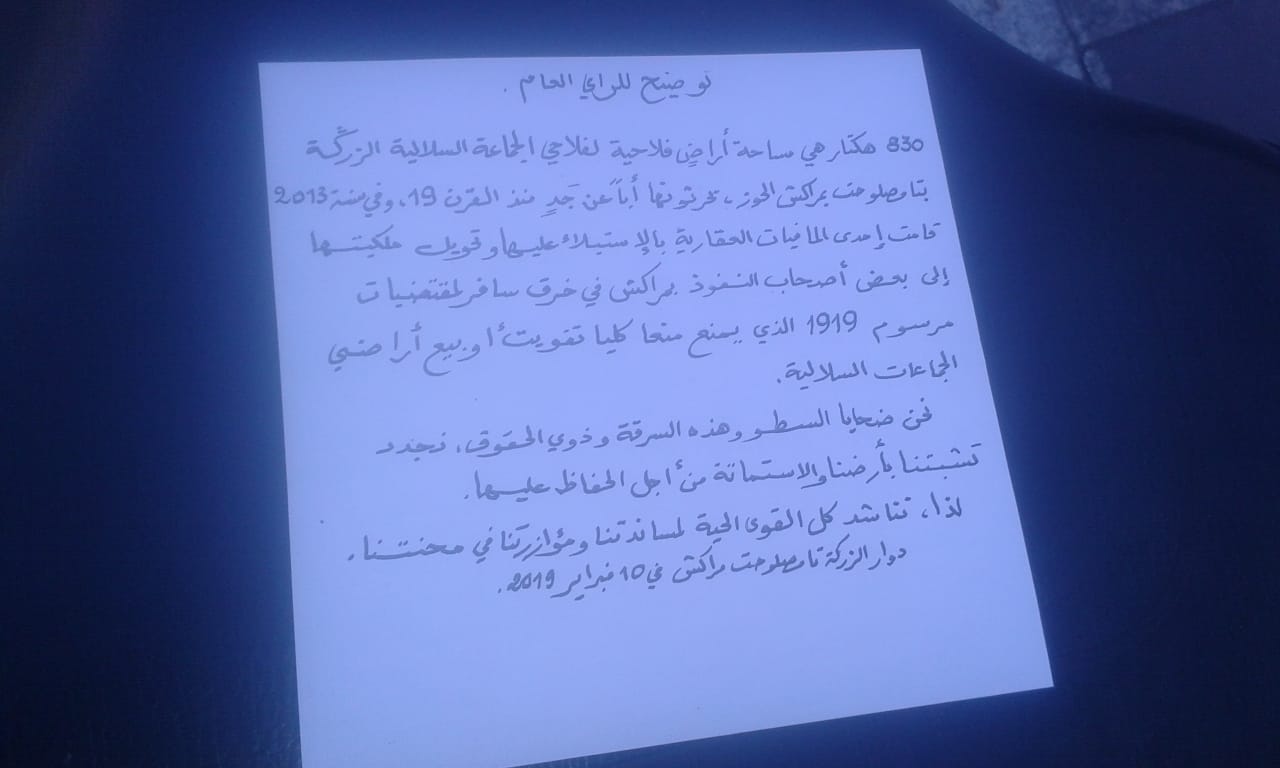 توضيح للراي العام .
830 هكتار هي ساحة أراضٍ فلاحية لفلاحي الجماعة السلالية الزرگة
بتامصلوحت بمراكش الحوز، يحرثونها أباً عن جَدٍ منذ القرن 19، وفي سنة 2013
قامت إحدى المافيات العقارية بالإستيلاء عليها وتحويل ملكيتها
إلى بعض أصحاب النفوذ بمراكش في خرق سافر لمقتضيات
مرسوم 1919 الذي يمنع منعا كليا تفويت أو بيع أراضي
الجماعات السلالية.
نحن ضحايا السطو وهذه السرقة وذوي الحقوق، نجدد
تشبتنا بأرضنا والاستماتة من أجل الحفاظ عليها.
لذا، نناشد كل القوى الحية لمساندتنا ومؤازرتنا في محنتنا.
دوار الزركة تامصلوحت مراكش في 10 فبراير 2019.